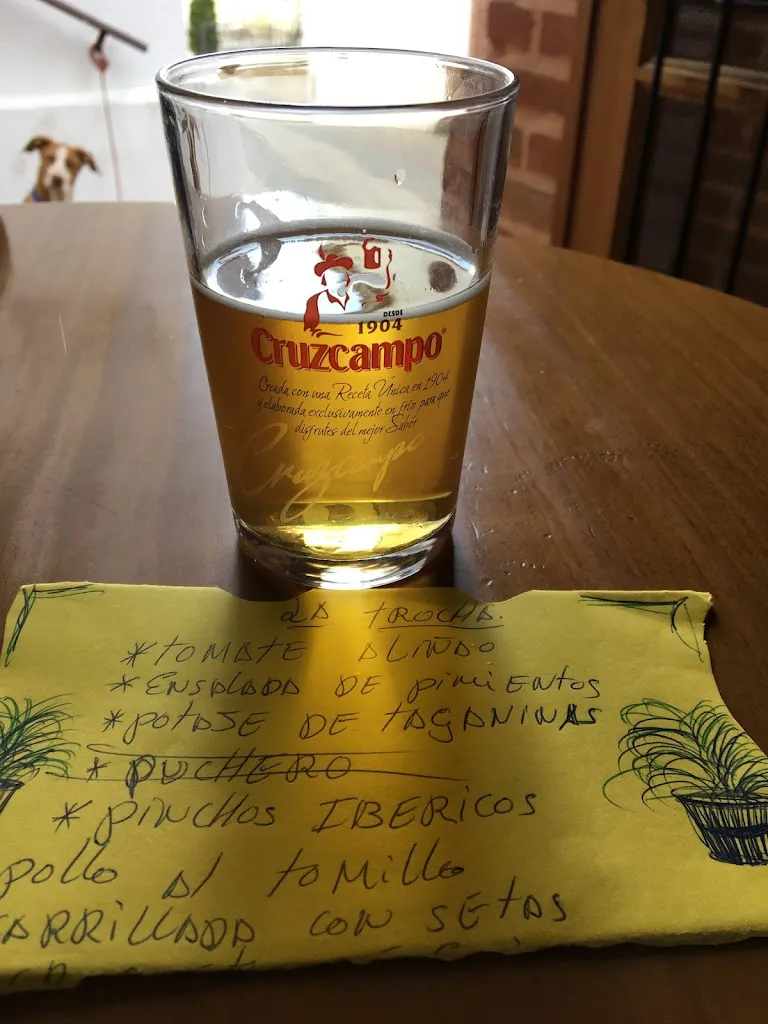 DESDE
1904
Cruzcampo
Creada con una Receta Única en 1904
y elaborada exclusivamente en frío para que
disfrutes del mejor Sabor
Cruzcampo
LA TROCHA.
*TOMATE ALIÑADO
*ENSALADA DE PIMIENTOS
*POTAJE DE TAGANINAS
*PUCHERO
*PINCHOS IBERICOS
POLLO Al TOMILLO
ARRILLADA CON SETAS